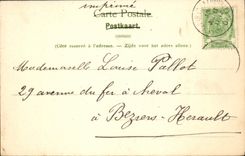 imprimé
Carte Postale
Postkaart
(Côté réservé à l'adresse. — Zijde voor het adres alleen)
Mademoiselle Louise Pallot
29 avenue du fer à cheval
à Beziers - Herault